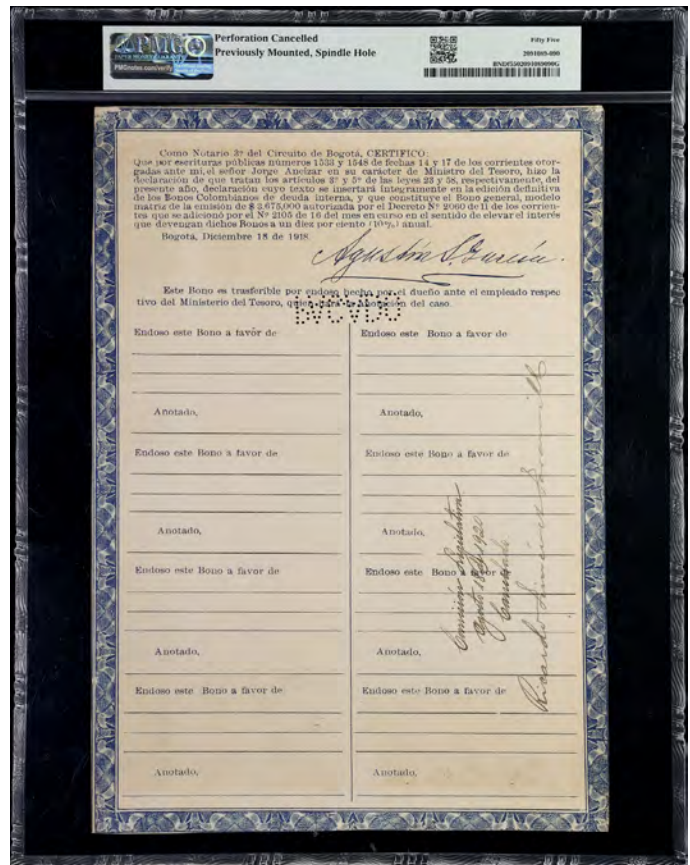 PMG
PAPER MONEY GUARANTY
PMGnotes.com/verify
Perforation Cancelled
Previously Mounted, Spindle Hole
Fifty Five
2091089-090
Como Notario 3º del Circuito de Bogotá, CERTIFICO:
Que por escrituras públicas números 1533 y 1548 de fechas 14 y 17 de los corrientes otor-
gadas ante mi, el señor Jorge Ancizar en su carácter de Ministro del Tesoro, hizo la
declaración de que tratan los artículos 3º y 5º de las leyes 23 y 58, respectivamente, del
presente año, declaración cuyo texto se insertará íntegramente en la edición definitiva
de los Bonos Colombianos de deuda interna, y que constituye el Bono general, modelo
matriz de la emisión de $ 3.675,000 autorizada por el Decreto Nº 2060 de 11 de los corrien-
tes que se adicionó por el Nº 2105 de 16 del mes en curso en el sentido de elevar el interés
que devengan dichos Bonos a un diez por ciento (10%) anual.
Bogotá, Diciembre 18 de 1918.
Este Bono es trasferible por endoso hecho por el dueño ante el empleado respec
tivo del Ministerio del Tesoro, quien hará la anotación del caso.
Endoso este Bono a favor de
Anotado,
Endoso este Bono a favor de
Anotado,
Endoso este Bono a favor de
Anotado,
Endoso este Bono a favor de
Anotado,
Endoso este Bono a favor de
Anotado,
Endoso este Bono a favor de
Anotado,
Endoso este Bono a favor de
Anotado,
Endoso este Bono a favor de
Anotado,
Comisión Legislativa
Agosto 18 1920
Ricardo Jiménez Jaramillo